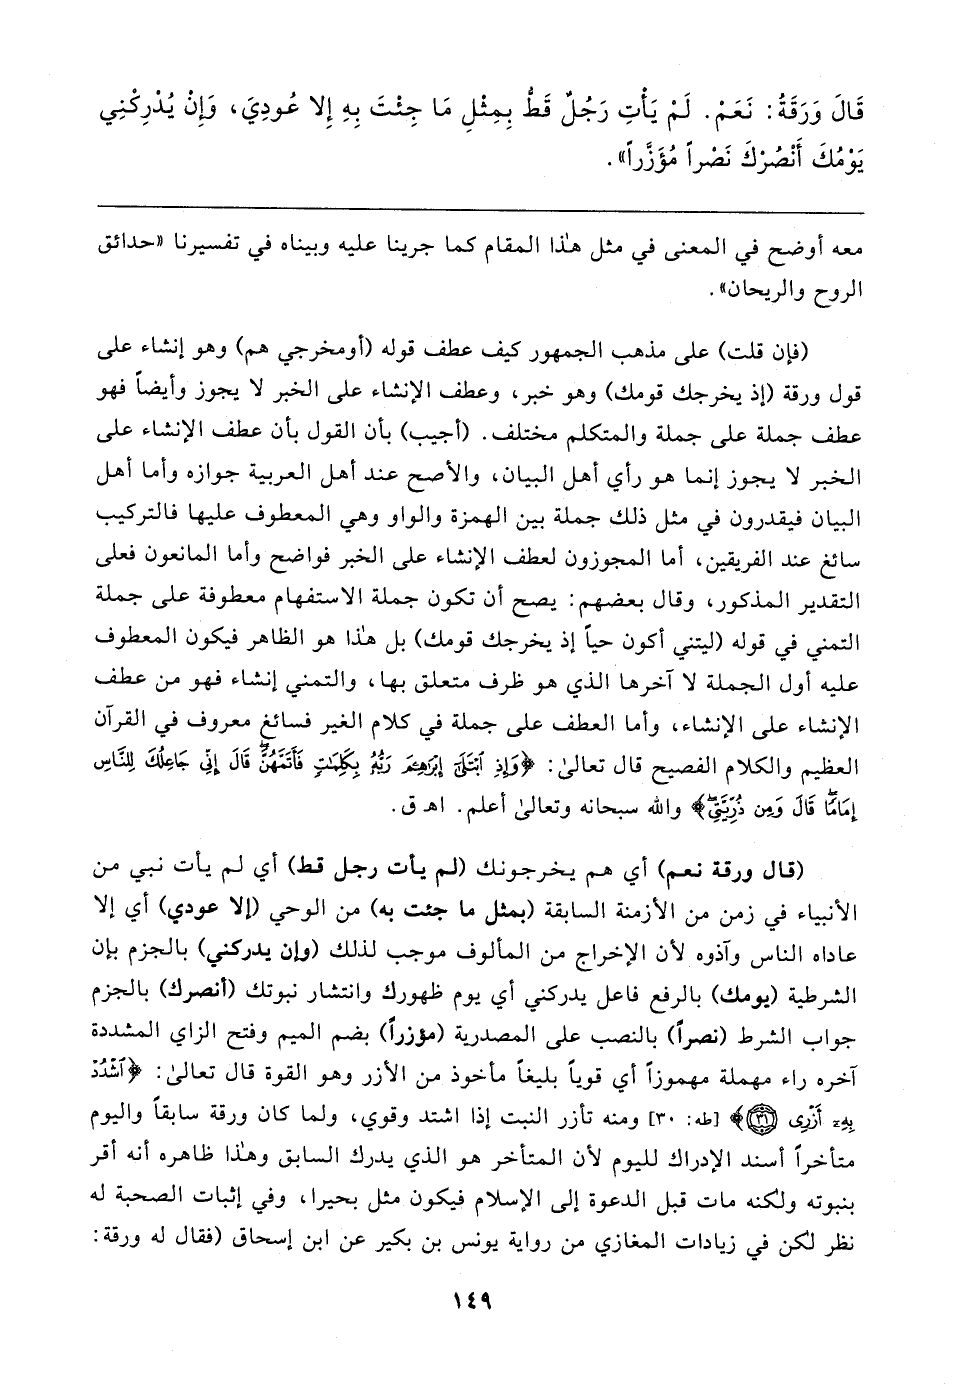 قَالَ وَرَقَةُ: نَعَمْ. لَمْ يَأْتِ رَجُلٌ قَطُّ بِمِثْلِ مَا جِئْتَ بِهِ إِلا عُودِيَ، وَإِنْ يُدْرِكْنِي
يَوْمُكَ أَنْصُرْكَ نَصْراً مُؤَزَّراً».
معه أوضح في المعنى في مثل هٰذا المقام كما جرينا عليه وبيناه في تفسيرنا «حدائق
الروح والريحان».
(فإن قلت) على مذهب الجمهور كيف عطف قوله (أومخرجي هم) وهو إنشاء على
قول ورقة (إذ يخرجك قومك) وهو خبر، وعطف الإنشاء على الخبر لا يجوز وأيضاً فهو
عطف جملة على جملة والمتكلم مختلف. (أجيب) بأن القول بأن عطف الإنشاء على
الخبر لا يجوز إنما هو رأي أهل البيان، والأصح عند أهل العربية جوازه وأما أهل
البيان فيقدرون في مثل ذلك جملة بين الهمزة والواو وهي المعطوف عليها فالتركيب
سائغ عند الفريقين، أما المجوزون لعطف الإنشاء على الخبر فواضح وأما المانعون فعلى
التقدير المذكور، وقال بعضهم: يصح أن تكون جملة الاستفهام معطوفة على جملة
التمني في قوله (ليتني أكون حياً إذ يخرجك قومك) بل هٰذا هو الظاهر فيكون المعطوف
عليه أول الجملة لا آخرها الذي هو ظرف متعلق بها، والتمني إنشاء فهو من عطف
الإنشاء على الإنشاء، وأما العطف على جملة في كلام الغير فسائغ معروف في القرآن
العظيم والكلام الفصيح قال تعالىٰ: ﴿وَإِذِ ٱبْتَلَىٰٓ إِبْرَٰهِـۧمَ رَبُّهُۥ بِكَلِمَٰتٍ فَأَتَمَّهُنَّۖ قَالَ إِنِّي جَاعِلُكَ لِلنَّاسِ
إِمَامًاۖ قَالَ وَمِن ذُرِّيَّتِيۖ﴾ والله سبحانه وتعالىٰ أعلم. اهـ ق.
(قال ورقة نعم) أي هم يخرجونك (لم يأت رجل قط) أي لم يأت نبي من
الأنبياء في زمن من الأزمنة السابقة (بمثل ما جئت به) من الوحي (إلا عودي) أي إلا
عاداه الناس وآذوه لأن الإخراج من المألوف موجب لذلك (وإن يدركني) بالجزم بإن
الشرطية (يومك) بالرفع فاعل يدركني أي يوم ظهورك وانتشار نبوتك (أنصرك) بالجزم
جواب الشرط (نصراً) بالنصب على المصدرية (مؤزراً) بضم الميم وفتح الزاي المشددة
آخره راء مهملة مهموزاً أي قوياً بليغاً مأخوذ من الأزر وهو القوة قال تعالىٰ: ﴿ٱشْدُدْ
بِهِۦٓ أَزْرِى ٣١﴾ [طه: ٣٠] ومنه تأزر النبت إذا اشتد وقوي، ولما كان ورقة سابقاً واليوم
متأخراً أسند الإدراك لليوم لأن المتأخر هو الذي يدرك السابق وهٰذا ظاهره أنه أقر
بنبوته ولكنه مات قبل الدعوة إلى الإسلام فيكون مثل بحيرا، وفي إثبات الصحبة له
نظر لكن في زيادات المغازي من رواية يونس بن بكير عن ابن إسحاق (فقال له ورقة:
١٤٩